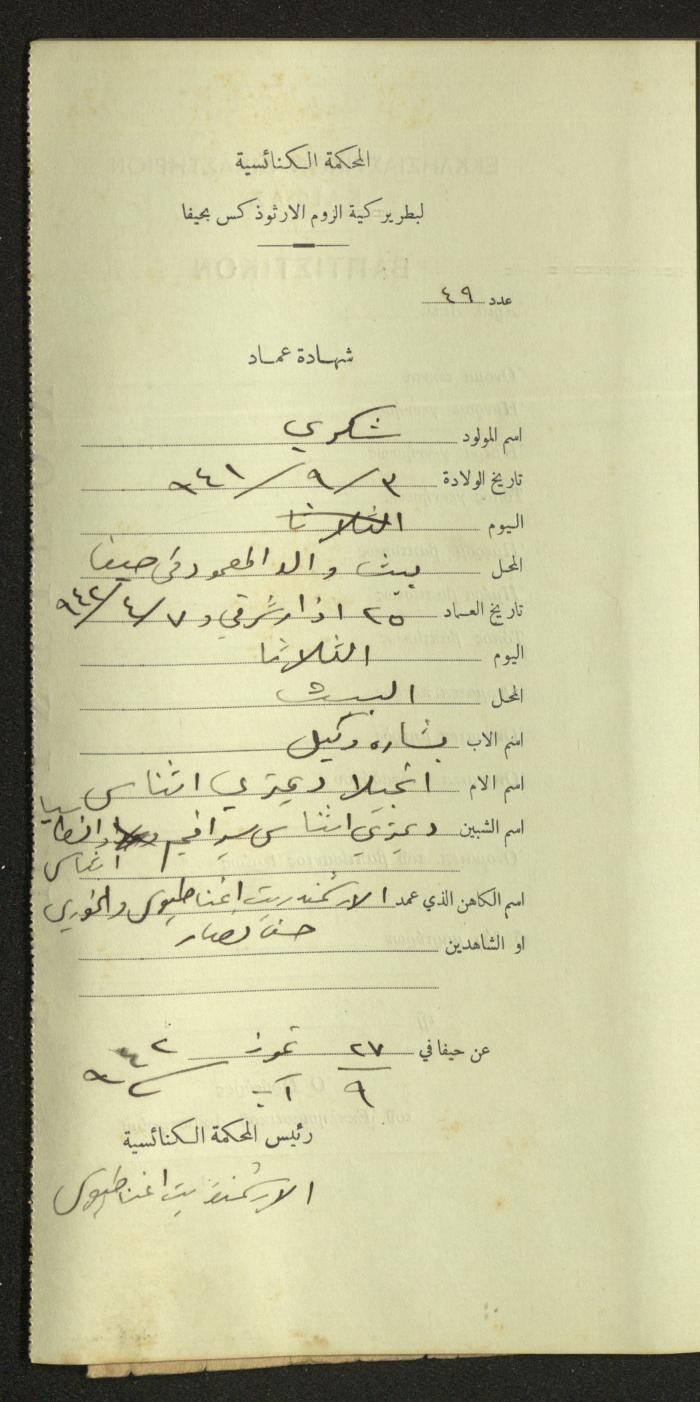 المحكمة الكنائسية
لبطريركية الروم الارثوذكس بحيفا
عدد ٤٩
شهادة عماد
اسم المولود شكري
تاريخ الولادة ٣/٩/٩٤١
اليوم الثلاثا
المحل بيت والد المعمود في حيفا
تاريخ العماد ٢٥ اذار شرقي و ٧/٤/٩٤٢
اليوم الثلاثا
المحل البيت
اسم الاب بشاره وكيل
اسم الام انجيلا ديمتري اثناس
اسم الشبين ديمتري اثناس سيرافيم
اسم الكاهن الذي عمد الارشمندريت اغناطيوس والخوري
او الشاهدين حنا نصار
عن حيفا في ٢٧ تموز ٩٤٢
٩ آب
رئيس المحكمة الكنائسية
الارشمندريت اغناطيوس